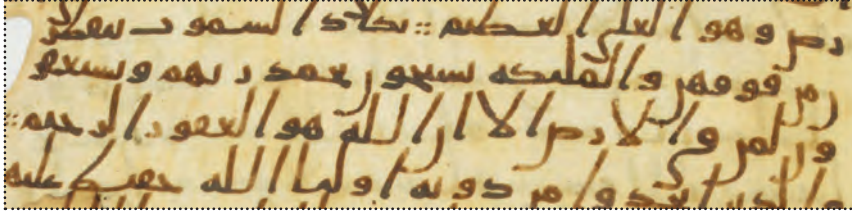 رض وهو العلي العظيم :: تكاد السموت يتفطر
ن من فوقهن والملئكة يسبحون بحمد ربهم ويستغفر
ون لمن في الارض الا ان الله هو الغفور الرحيم ::
والذين اتخذوا من دونه اوليا الله حفيظ عليهم